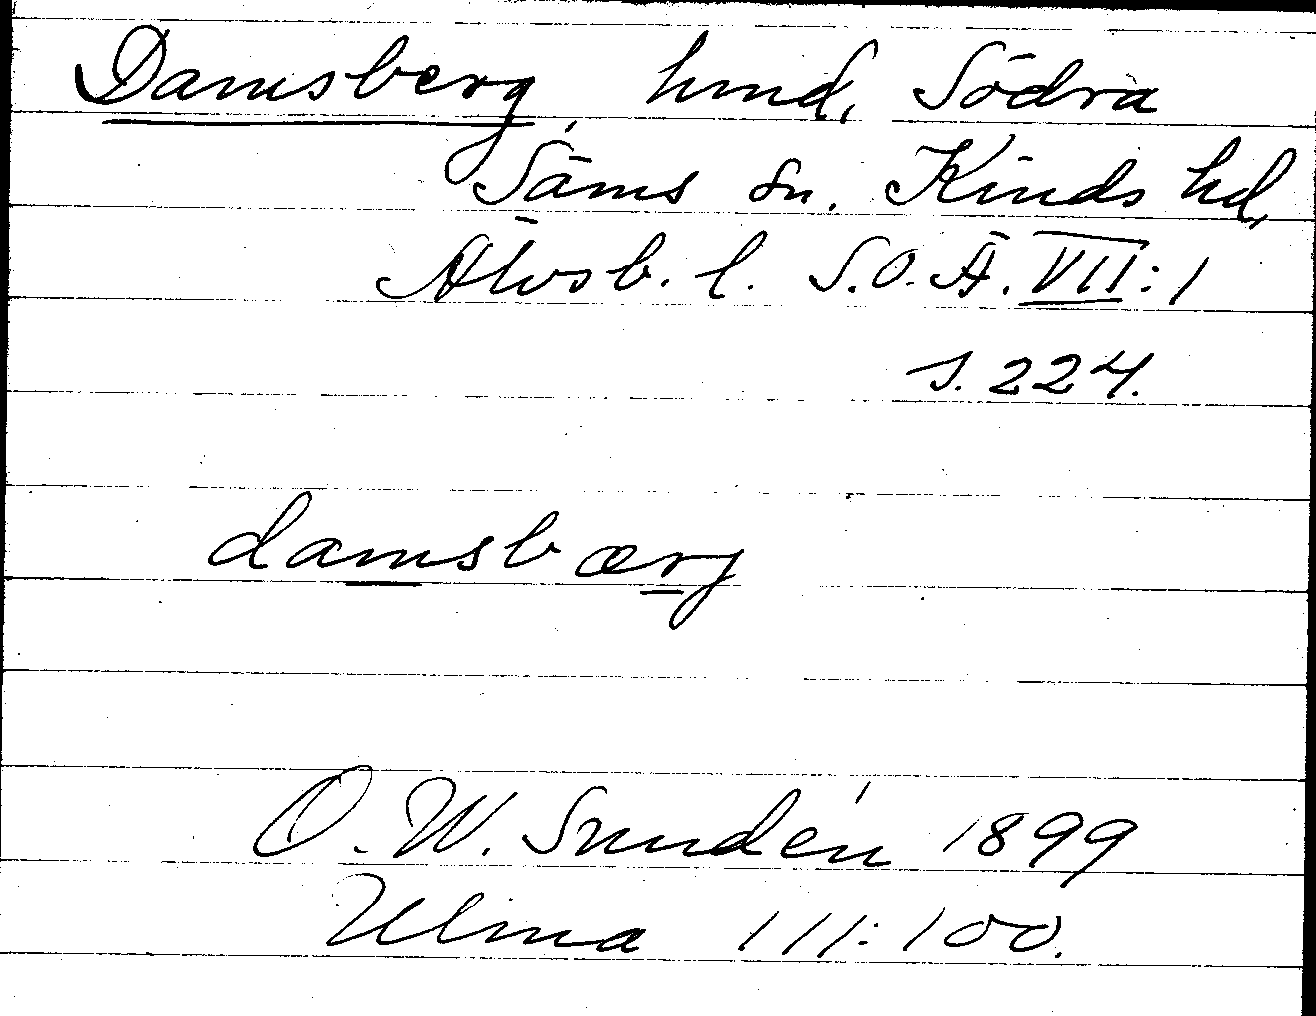 Damsberg hmd, Södra
Säms sn. Kinds hd,
Älvsb. l. S.O.Ä. VII:1
s. 224.
damsbærj
O. W. Sundén 1899
Ulma 111:100.